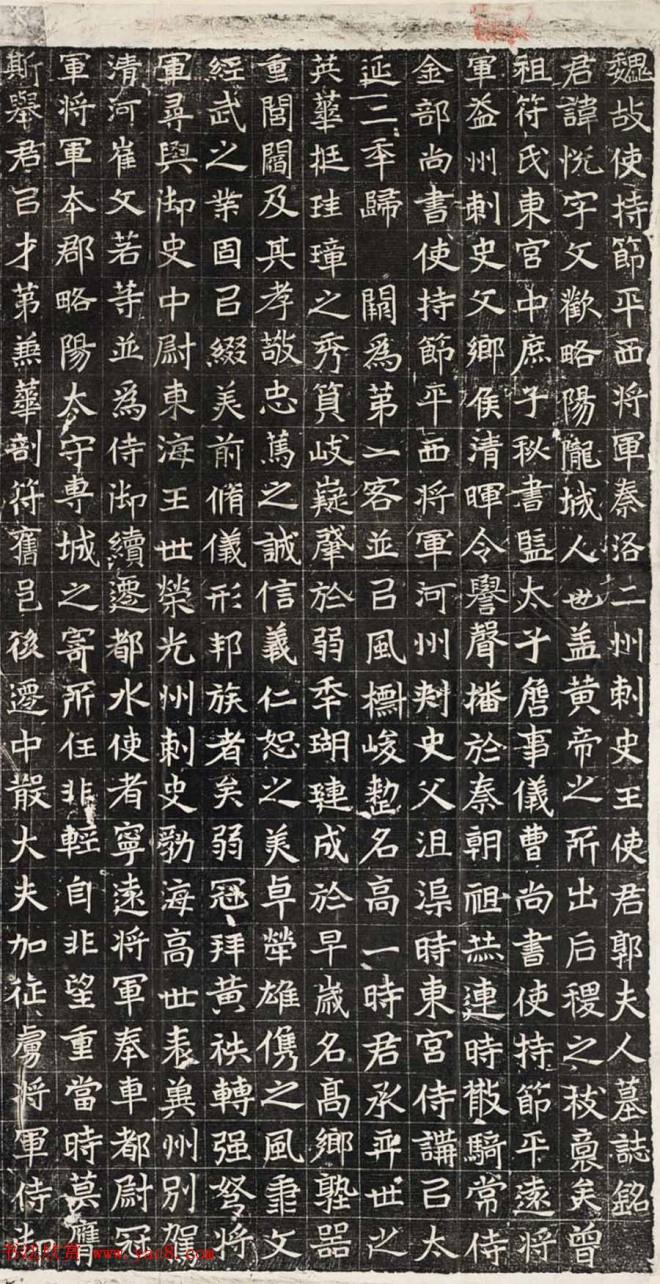 魏故使持節平西將軍秦洛二州刺史王使君郭夫人墓誌銘
君諱悦字文歡略陽隴城人也盖黃帝之所出后稷之枝裔矣曾
祖符氏東宮中庶子秘書監太子詹事儀曹尚書使持節平遠將
軍益州刺史父鄉侯清暉令譽聲播於秦朝祖恭連時散騎常侍
金部尚書使持節平西將軍河州刾史父沮渠時東宮侍講召太
延二秊歸 闕爲第一客並召風檦峻懃名高一時君承弈世之
英華挺珪璋之秀質岐嶷肇於弱秊瑚璉成於早歲名髙鄉塾器
重閭閻及其孝敬忠蔫之誠信義仁恕之美卓犖雄儁之風肅文
經武之業固召綴美前脩儀形邦族者矣弱冠拜黃袟轉强弩將
軍尋與御史中尉東海王世榮光州刺史勃海高世表兾州別駕
清河崔文若等並爲侍御續遷都水使者寧遠將軍奉車都尉冠
軍將軍本郡略陽太守專城之寄所任非輕自非望重當時莫應
斯舉君召才第兼華剖符舊邑後遷中散大夫加征虜將軍侍
书法欣赏 www.yac8.com